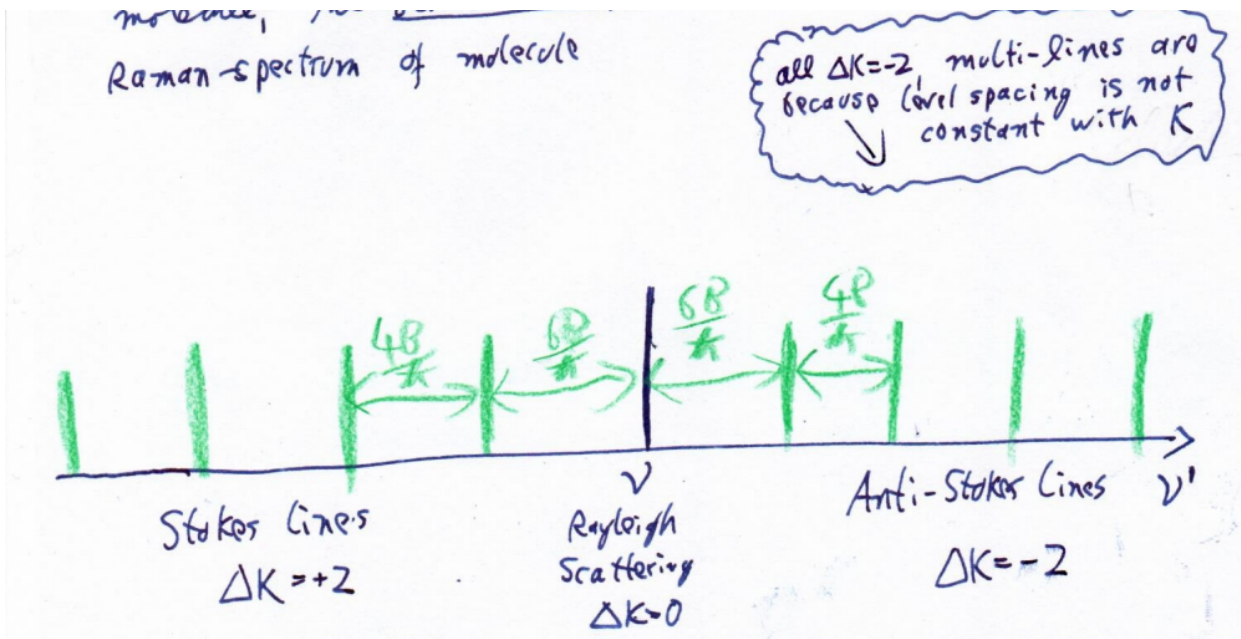 molecule,
Raman-spectrum of molecule
all ΔK=-2, multi-lines are
because level spacing is not
constant with K
4B/h
6B/h
6B/h
4B/h
ν
ν'
Stokes lines
ΔK=+2
Rayleigh
Scattering
ΔK=0
Anti-Stokes lines
ΔK=-2